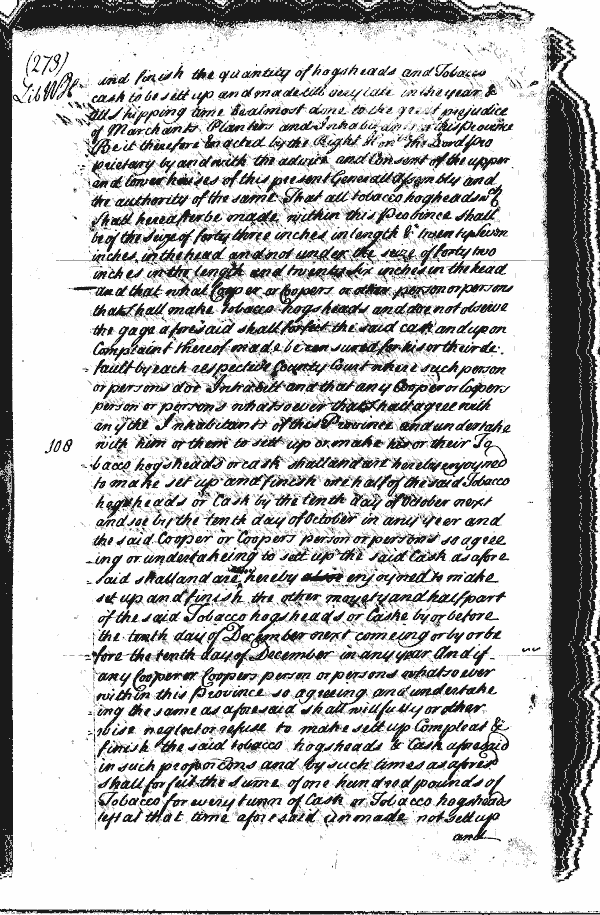 (273)
Lib WH
and finish the quantity of hogsheads and Tobacco
cask to be sett up and made till very late in the year &
all shipping time bealmost done to the great prejudice
of Marchants Planters and Inhabitants of this Province
Be it therefore Enacted by the Right Honble the Lord Pro
prietary by and with the advice and Consent of the upper
and lower houses of this present Generall Assembly and
the authority of the same That all tobacco hogsheads wch
shall hereafter be made within this Province shall
be of the seize of forty three inches in length & twenty seven
inches in the head and not under the seize of forty two
inches in the length and twenty six inches in the head
and that what Cooper or Coopers or other person or persons
that shall make Tobacco hogsheads and doe not observe
the gage aforesaid shall forfeit the said cask and upon
Complaint thereof made be censured for his or their de
fault by each respective County Court where such person
or persons doe Inhabitt and that any Cooper or Coopers
person or persons whatsoever that shall agree with
any the Inhabitants of this Province and undertake
108
with him or them to sett up or make his or their To
bacco hogsheads or cask shall and are hereby enjoyned
to make set up and finish one half of the said Tobacco
hogsheads or Cask by the tenth day of October next
and soe by the tenth day of October in any year and
the said Cooper or Coopers person or persons so agree
ing or undertakeing to sett up the said Cask as afore
said shall and are hereby enjoyned to make
set up and finish the other moyety and half part
of the said Tobacco hogsheads or Caske by or before
the tenth day of December next comeing or by or be
fore the tenth day of December in any year And if
any Cooper or Coopers person or persons whatsoever
within this Province so agreeing and undertake
ing the same as aforesaid shall willfully or other
wise neglect or refuse to make sett up Compleat &
finish the said tobacco hogsheads & Cask aforesaid
in such proporcons and by such times as aforesd
shall forfeit the sume of one hundred pounds of
Tobacco for every tunn of Cask or Tobacco hogsheads
left at that time aforesaid unmade not sett up
and